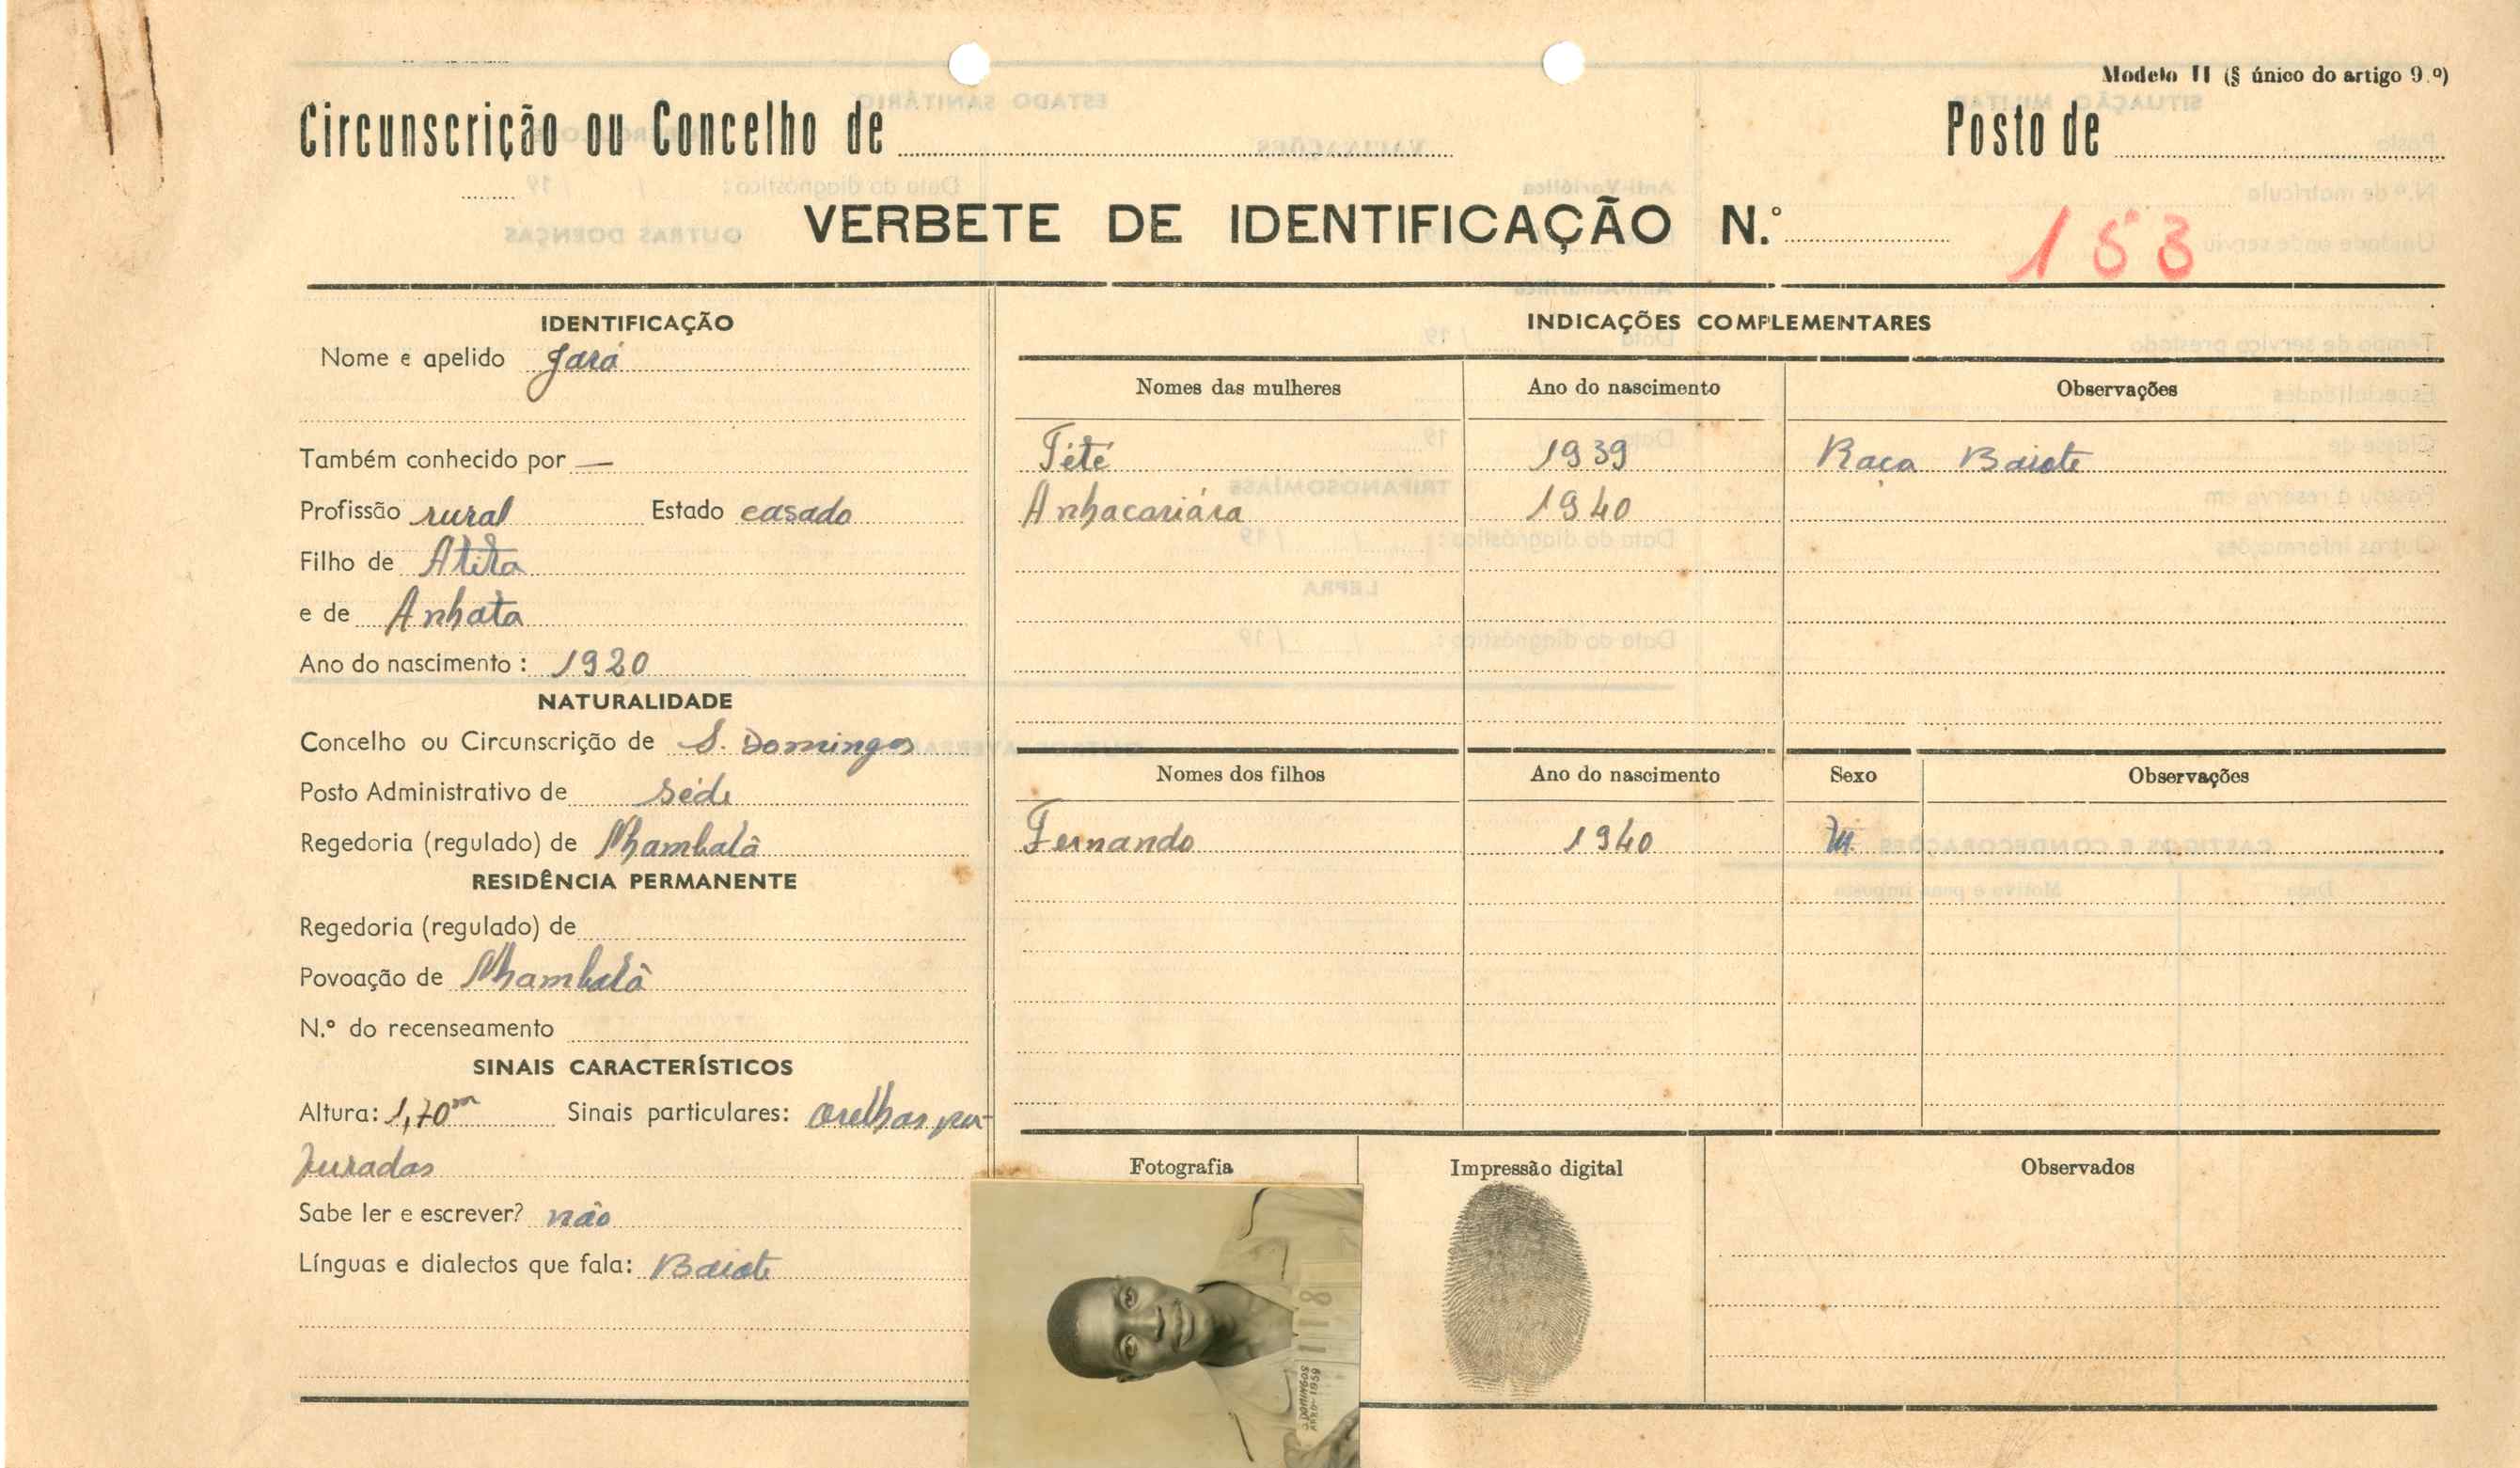 Modelo II (§ único do artigo 9.º)
Circunscrição ou Concelho de
Posto de
VERBETE DE IDENTIFICAÇÃO N.º
153
IDENTIFICAÇÃO
Nome e apelido Jará
Também conhecido por —
Profissão rural Estado casado
Filho de Atita
e de Anhata
Ano do nascimento: 1920
NATURALIDADE
Concelho ou Circunscrição de S. Domingos
Posto Administrativo de séde
Regedoria (regulado) de Nhambalã
RESIDÊNCIA PERMANENTE
Regedoria (regulado) de
Povoação de Nhambalã
N.º do recenseamento
SINAIS CARACTERÍSTICOS
Altura: 1,70m Sinais particulares: Orelhas per-
furadas
Sabe ler e escrever? não
Línguas e dialectos que fala: Baiote
INDICAÇÕES COMPLEMENTARES
Nomes das mulheres Ano do nascimento Observações
Tété 1939 Raça Baiote
Anhacariára 1940
Nomes dos filhos Ano do nascimento Sexo Observações
Fernando 1940 M.
Fotografia Impressão digital Observados
1118
S. DOMINGOS
ABRO-1959